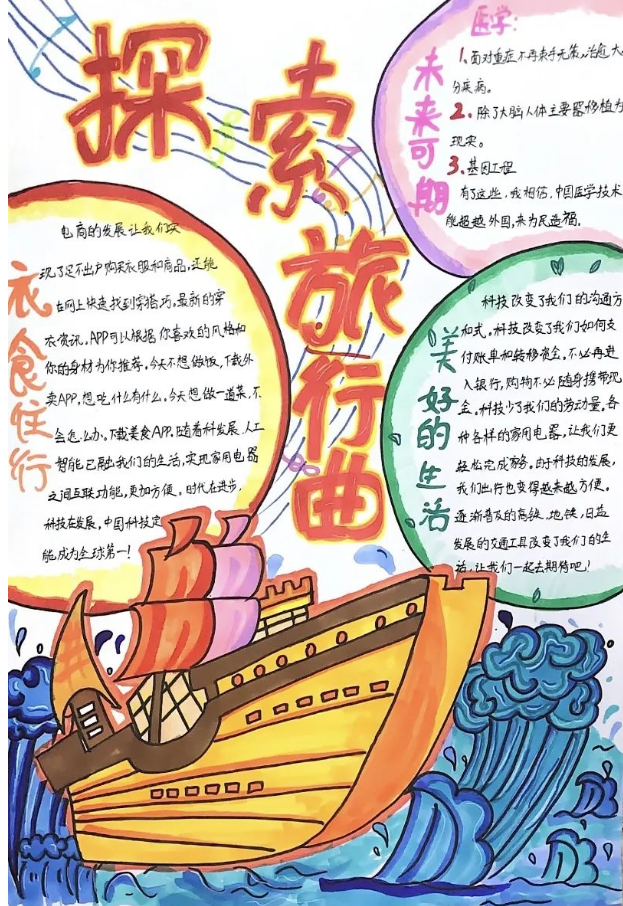 探索旅行曲
医学:
未来可期
1.面对重症不再束手无策,治愈大
分疾病。
2.除了大脑人体主要器移植为
现实。
3.基因工程
有了这些,我相信,中国医学技术
能超越外国,来为民造福。
衣食住行
电商的发展让我们实
现了足不出户购买衣服和商品,还能
在网上快速找到穿搭巧,最新的穿
衣资讯,APP可以根据你喜欢的风格和
你的身材为你推荐。今天不想做饭,下载外
卖APP,想吃什么有什么。今天想做一道菜,不
会怎么办,下载美食APP。随着科发展,人工
智能已融我们的生活,实现家用电器
之间互联功能,更加方便。时代在进步,
科技在发展,中国科技定
能成为全球第一!
美好的生活
科技改变了我们的沟通方
和式。科技改变了我们如何支
付账单和转移资金,不必再进
入银行,购物不必随身携带现
金。科技少了我们的劳动量。各
种各样的家用电器,让我们更
轻松完成家务。由于科技的发展,
我们出行也变得越来越方便。
逐渐普及的高铁、地铁,日益
发展的交通工具改变了我们的生
活,让我们一起去期待吧!